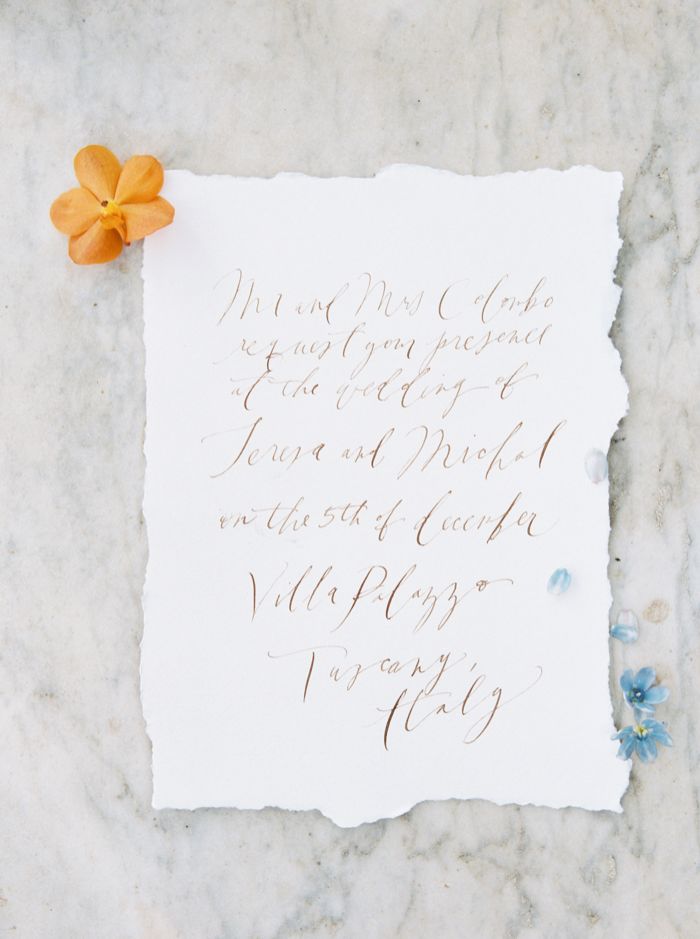 Mr and Mrs Colombo
request your presence
at the wedding of
Teresa and Michal
on the 5th of december
Villa Palazzo
Tuscany,
Italy